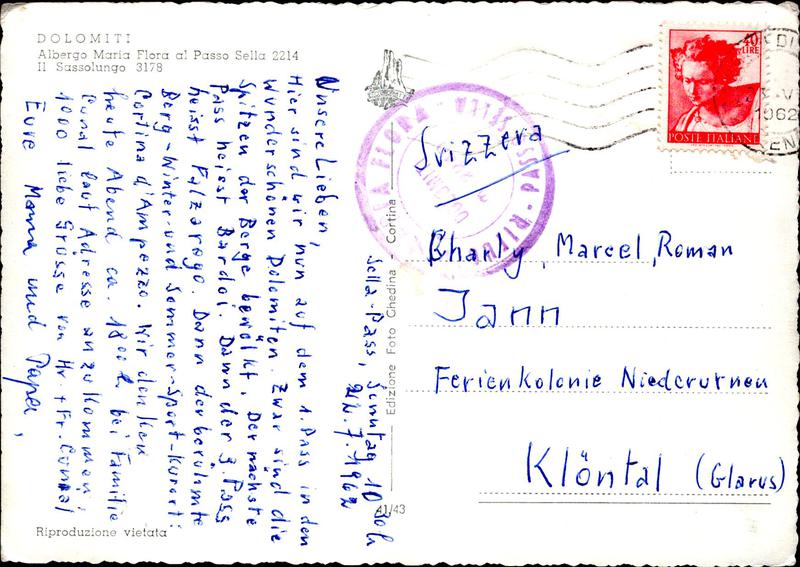 DOLOMITI
Albergo Maria Flora al Passo Sella 2214
Il Sassolungo 3178
Sella-Pass, Sonntag 10 30 h
22.7.1962
Unsere Lieben,
Hier sind wir nun auf dem 1. Pass in den
Wunderschönen Dolomiten. Zwar sind die
Spitzen der Berge bewölkt. Der nächste
Pass heisst Bardoi. Dann der 3. Pass
heisst Falzarogo. Dann der berühmte
Berg-Winter-und Sommer-Sport-Kurort:
Cortina d'Ampezzo. Wir denken
heute Abend ca. 18 00 h bei Familie
laut Adresse anzukommen,
1000 liebe Grüsse von Hr. + Fr.
Eure Mama und Papa,
Riproduzione vietata
Edizione Foto Ghedina - Cortina
41/43
FLORA - PASSO SELLA
40 LIRE
POSTE ITALIANE
1962
Svizzera
Charly, Marcel, Roman
Jann
Ferienkolonie Niederurnen
Klöntal (Glarus)